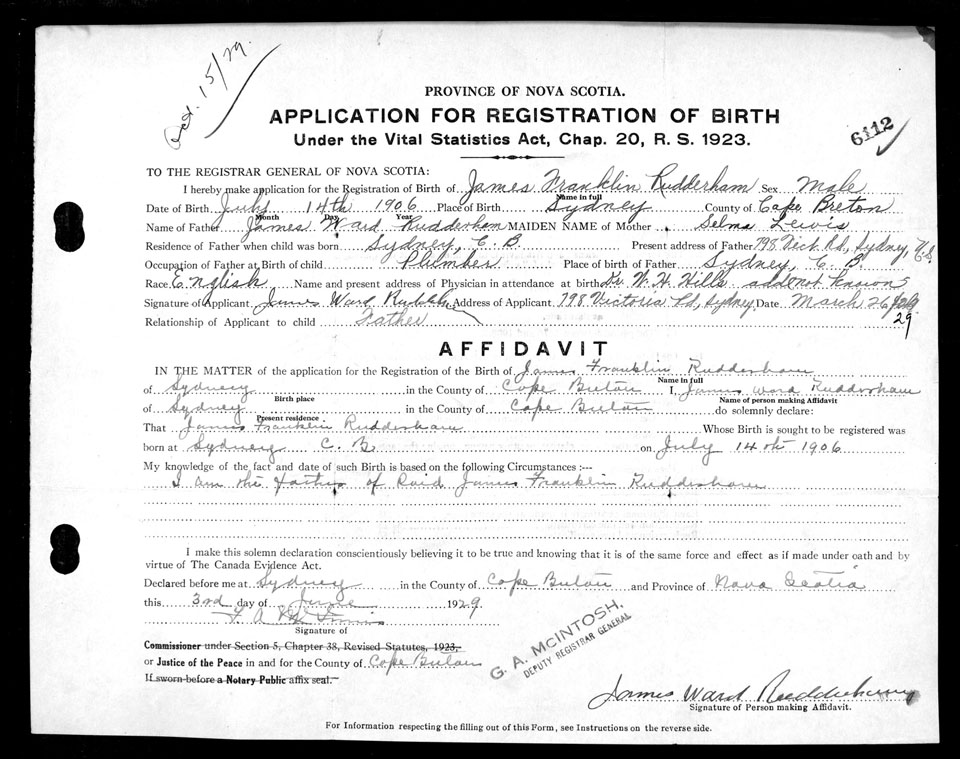 Oct. 15/29.
PROVINCE OF NOVA SCOTIA.
APPLICATION FOR REGISTRATION OF BIRTH
Under the Vital Statistics Act, Chap. 20, R. S. 1923.
6112
TO THE REGISTRAR GENERAL OF NOVA SCOTIA:
I hereby make application for the Registration of Birth of James Franklin Rudderham Sex Male
Name in full
Date of Birth July 14th 1906 Place of Birth Sydney County of Cape Breton
Month Day Year
Name of Father James Ward Rudderham MAIDEN NAME of Mother Selma Lewis
Residence of Father when child was born Sydney, C. B. Present address of Father 798 Vict. Rd, Sydney, N.S.
Occupation of Father at Birth of child Plumber Place of birth of Father Sydney, C. B.
Race English Name and present address of Physician in attendance at birth Dr W. H. Hills add not known
Signature of Applicant James Ward Address of Applicant 798 Victoria Rd, Sydney Date March 26
29
Relationship of Applicant to child Father
AFFIDAVIT
IN THE MATTER of the application for the Registration of the Birth of James Franklin Rudderham
Name in full
of Sydney in the County of Cape Breton I, James Ward Rudderham
Birth place Name of person making Affidavit
of Sydney in the County of Cape Breton do solemnly declare:
Present residence
That James Franklin Rudderham Whose Birth is sought to be registered was
born at Sydney C. B. on July 14th 1906
My knowledge of the fact and date of such Birth is based on the following Circumstances :---
I am the father of Said James Franklin Rudderham
I make this solemn declaration conscientiously believing it to be true and knowing that it is of the same force and effect as if made under oath and by
virtue of The Canada Evidence Act.
Declared before me at Sydney in the County of Cape Breton and Province of Nova Scotia
this 3rd day of June 1929
Signature of
Commissioner under Section 5, Chapter 38, Revised Statutes, 1923,
or Justice of the Peace in and for the County of Cape Breton
If sworn before a Notary Public affix seal.
G. A. McINTOSH,
DEPUTY REGISTRAR GENERAL
James Ward Rudderham
Signature of Person making Affidavit.
For Information respecting the filling out of this Form, see Instructions on the reverse side.